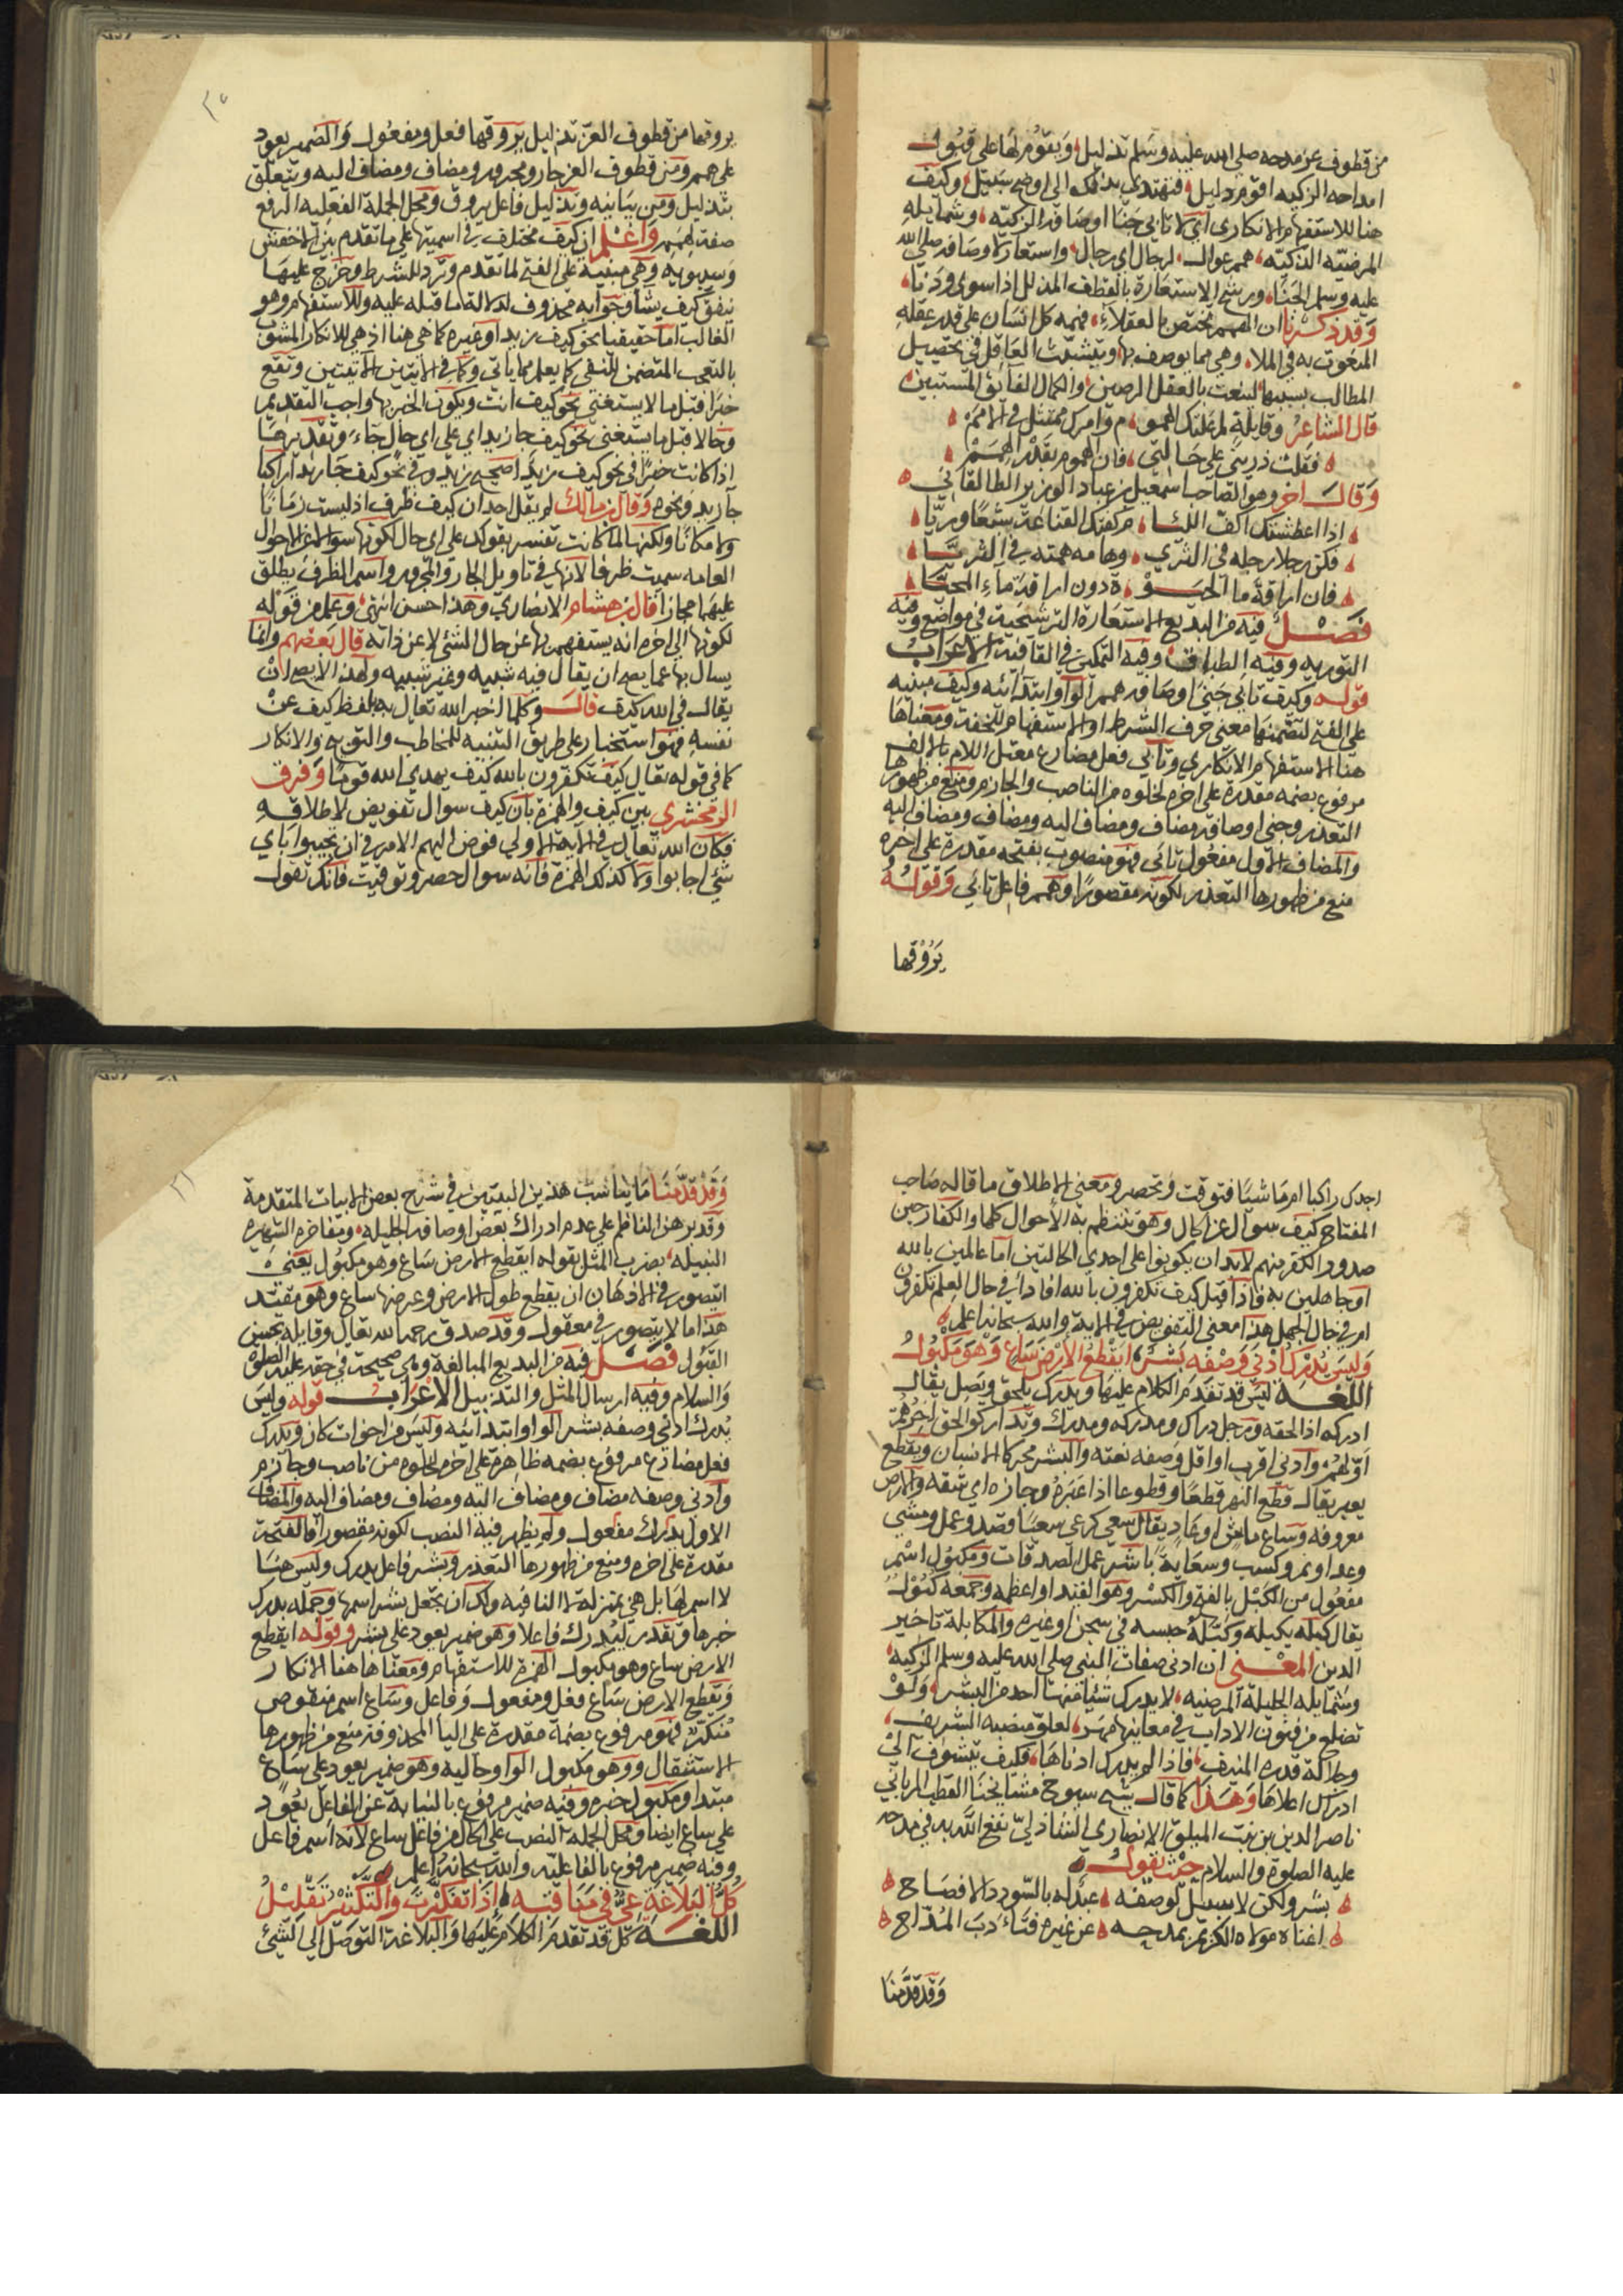 من قطوف عز مدحه صلى الله عليه وسلم تذليل ويقوم لها على قبول
امداحه الزكيه اقوم دليل فتهتدي بذلك الى اوضح سبيل وكيف
هنا للاستفهام الانكاري اي لا تاتي جنا اوصافه الزكيّه وشمايله
المرضيّه الذكيّه همم عوال لرجال اي رجال واستعار لاوصافه صلى الله
عليه وسلم الجنا ورشح الاستعارة بالقطف المذلل اذا سوى ودنا
وقد ذكرنا ان الهمم مختص بالعقلاء فهمه كل انسان على قدر عقله
المنعوت به في الملا وهي مما يوصف بها ويتشبث العاقل في تحصيل
المطالب بسببها لينعت بالعقل الرصين والكمال الفائق المستبين
قال الشاعر وقايلة لم علتك الهموم وامرك ممتثل في الامم
فقلت ذريني على حالتي فان الهموم بقدر الهمم
وقال اخر وهو الصاحب اسمعيل بن عباد الوزير الطالقاني
اذا اعطشتك اكف اللئام كفتك القناعة شبعا وريّا
فكن رجلا رجله في الثرى وهامه همته في الثريّا
فان اراقة ما الحيوة دون اراقة ماء المحيّا
فصل فيه من البديع الاستعارة الترشيحية في مواضع وفيه
التوريه وفيه الطباق وفيه التمكين في القافية الاعراب
قوله وكيف تاتي جنى اوصافه همم الواو ابتدائيه وكيف مبنيه
على الفتح لتضمنها معنى حرف الشرط او الاستفهام للخفة ومعناها
هنا الاستفهام الانكاري وتاتي فعل مضارع معتل اللام بالالف
مرفوع بضمه مقدرة على اخره لخلوه من الناصب والجازم ومنع من ظهورها
التعذر وجنى اوصافه مضاف ومضاف اليه ومضاف ومضاف اليه
والمضاف الاول مفعول تاتي فهو منصوب بفتحه مقدرة على اخره
منع من ظهورها التعذر لكونه مقصورا وهمم فاعل تاتي وقوله
يروقها
يروقها من قطوف العز تذليل يروقها فعل ومفعول والضمير يعود
على همم ومن قطوف العز جار ومجرور ومضاف ومضاف اليه ويتعلق
بتذليل ومن بيانيه وتذليل فاعل يروق ومحل الجملة الفعليه الرفع
صفة لهمم واعلم ان كيف مختلف في اسميتها على ما تقدم بين الاخفش
وسيبويه وهي مبنيه على الفتح لما تقدم وترد للشرط وخرج عليها
ينفق كيف يشا وجوابه محذوف لدلالة ما قبله عليه وللاستفهام وهو
الغالب اما حقيقيا نحو كيف زيد او غيره كما هي هنا اذ هي للانكار المشوب
بالتعجب المتضمن للنفي كما يعلم مما ياتي وكما في الايتين الاتيتين وتقع
خبرا قبل ما لا يستغنى نحو كيف انت ويكون الخبر بها واجب التقديم
وحالا قبل ما يستغنى نحو كيف جا زيد اي على اي حال جاء وتقديرها
اذا كانت خبرا في نحو كيف زيد اصحيح زيد وفي نحو كيف جا زيد اراكبا
جا زيد ونحوه وقال ابن مالك لم يقل احد ان كيف ظرف اذ ليست زمانا
ولا مكانا ولكنها لما كانت تفسر بقولك على اي حال لكونها سوالا عن الاحوال
العامه سميت ظرفا لانها في تاويل الجار والمجرور واسم الظرف يطلق
عليهما مجازا قال ابن هشام الانصاري وهذا احسن انتهى وعلم من قوله
لكونها الى اخره انه يستفهم بها عن حال الشئ لا عن ذاته قال بعضهم وانما
يسال بها عما يصح ان يقال فيه شبيه وغير شبيه ولهذا لا يصح ان
يقال في الله كيف قال وكلما اخبر الله تعالى بلفظ كيف عن
نفسه فهو استخبار على طريق التنبيه للمخاطب والتوبيخ والانكار
كما في قوله تعالى كيف تكفرون بالله كيف يهدي الله قوما وفرق
الزمخشري بين كيف والهمزة بان كيف سوال تفويض لاطلاقه
فكان الله تعالى في الاية الاولى فوض اليهم الامر في ان يجيبوا باي
شئ اجابوا ولا كذلك الهمزة فانه سوال حصر وتوقيت فانك تقول
اجدك راكبا ام ماشيا فتوقت وتحصر ومعنى الاطلاق ما قاله صاحب
المفتاح كيف سوال عن الحال وهو ينتظم به الاحوال كلها والكفار حين
صدور الكفر منهم لابد ان يكونوا على احدى الحالتين اما عالمين بالله
او جاهلين به فاذا قيل كيف تكفرون بالله افاد افي حال العلم تكفرون
ام في حال الجهل هذا معنى التفويض في الاية والله سبحانه اعلم
وليس يدرك ادنى وصفه بشر ايقطع الارض ساع وهو مكبول
اللغة ليس قد تقدم الكلام عليها ويدرك يلحق ويصل يقال
ادركه اذا لحقه ورجل دراك ومدركه ومدرك وتداركوا لحق اخرهم
اولهم وادنى اقرب او اقل وصفه نعته والبشر محركا الانسان ويقطع
يعبر يقال قطع النهر قطعا وقطوعا اذا عبره وجازه اي شقه والارض
معروفه وساع ماش او عاد يقال سعى كرعى سعيا قصد وعمل ومشى
وعدا ونم وكسب وسعاية باشر عمل الصدقات ومكبول اسم
مفعول من الكبل بالفتح والكسر وهو القيد او اعظمه وجمعه كبول
يقال كبله يكبله وكبّله حبسه في سجن او غيره والمكابلة تاخير
الدين المعنى ان ادنى صفات النبي صلى الله عليه وسلم الزكيه
وشمايله الجليلة المرضيه لا يدرك شيا منها احد من البشر ولو
تضلع من فنون الاداب في معانيها ومهر لعلو منصبه الشريف
وجلالة قدره المنيف فاذا لم يدرك ادناها فكيف يتشوف الى
ادراك اعلاها وهذا كما قال شيخ شيوخ مشايخنا القطب الرباني
ناصر الدين بن بنت الميلق الانصاري الشاذلي نفع الله به في مدحه
عليه الصلوة والسلام حيث يقول
بشر ولكن لا سبيل لوصفه عبد له بالسودد الافصاح
اغناه مولاه الكريم بمدحه عن غيره فتادب المداح
وقد قدمنا
وقد قدمنا ما يناسب هذين البيتين في شرح بعض الابيات المتقدمة
وقد برهن الناظم على عدم ادراك بعض اوصافه الجليله ومفاخره الشهيره
النبيله بضرب المثل بقوله ايقطع الارض ساع وهو مكبول يعني
ايتصور في الاذهان ان يقطع طول الارض وعرضها ساع وهو مقيد
هذا ما لا يتصور في معقول وقد صدق رحمه الله تعالى وقابله بحسن
القبول فصل فيه من البديع المبالغة وهي صحيحة في حقه عليه الصلوة
والسلام وفيه ارسال المثل والتذييل الاعراب قوله وليس
يدرك ادنى وصفه بشر الواو ابتدائيه وليس من اخوات كان ويدرك
فعل مضارع مرفوع بضمه ظاهرة على اخره لخلوه من ناصب وجازم
وادنى وصفه مضاف ومضاف اليه ومضاف ومضاف اليه والمضاف
الاول يدرك مفعول ولم يظهر فيه النصب لكونه مقصورا فالفتحة
مقدرة على اخره ومنع من ظهورها التعذر وبشر فاعل يدرك وليس هنا
لا اسم لها بل هي بمنزلة لا النافيه ولك ان تجعل بشر اسمها وجملة يدرك
خبرها وتقدر ليدرك فاعلا وهو ضمير يعود على بشر وقوله ايقطع
الارض ساع وهو مكبول الهمزة للاستفهام ومعناها هنا الانكار
ويقطع الارض ساع فعل ومفعول وفاعل وساع اسم منقوص
منكر فهو مرفوع بضمة مقدرة على اليا المحذوفة منع من ظهورها
الاستثقال ووهو مكبول الواو حاليه وهو ضمير يعود على ساع
مبتدا ومكبول خبره وفيه ضمير مرفوع بالنيابة عن الفاعل يعود
على ساع ايضا ومحل الجملة النصب على الحال من فاعل ساع لانه اسم فاعل
وفيه ضمير مرفوع بالفاعليه والله سبحانه اعلم
كل البلاغة عي في مناقبه اذا تفكرت والتكثير تقليل
اللغة كل قد تقدم الكلام عليها والبلاغة التوصل الى الشئ